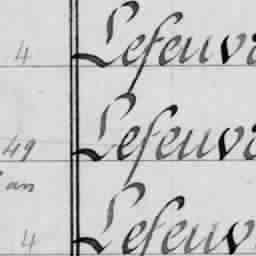 4 Lefeuv
49 Lefeuv
an
4 Lefeuv